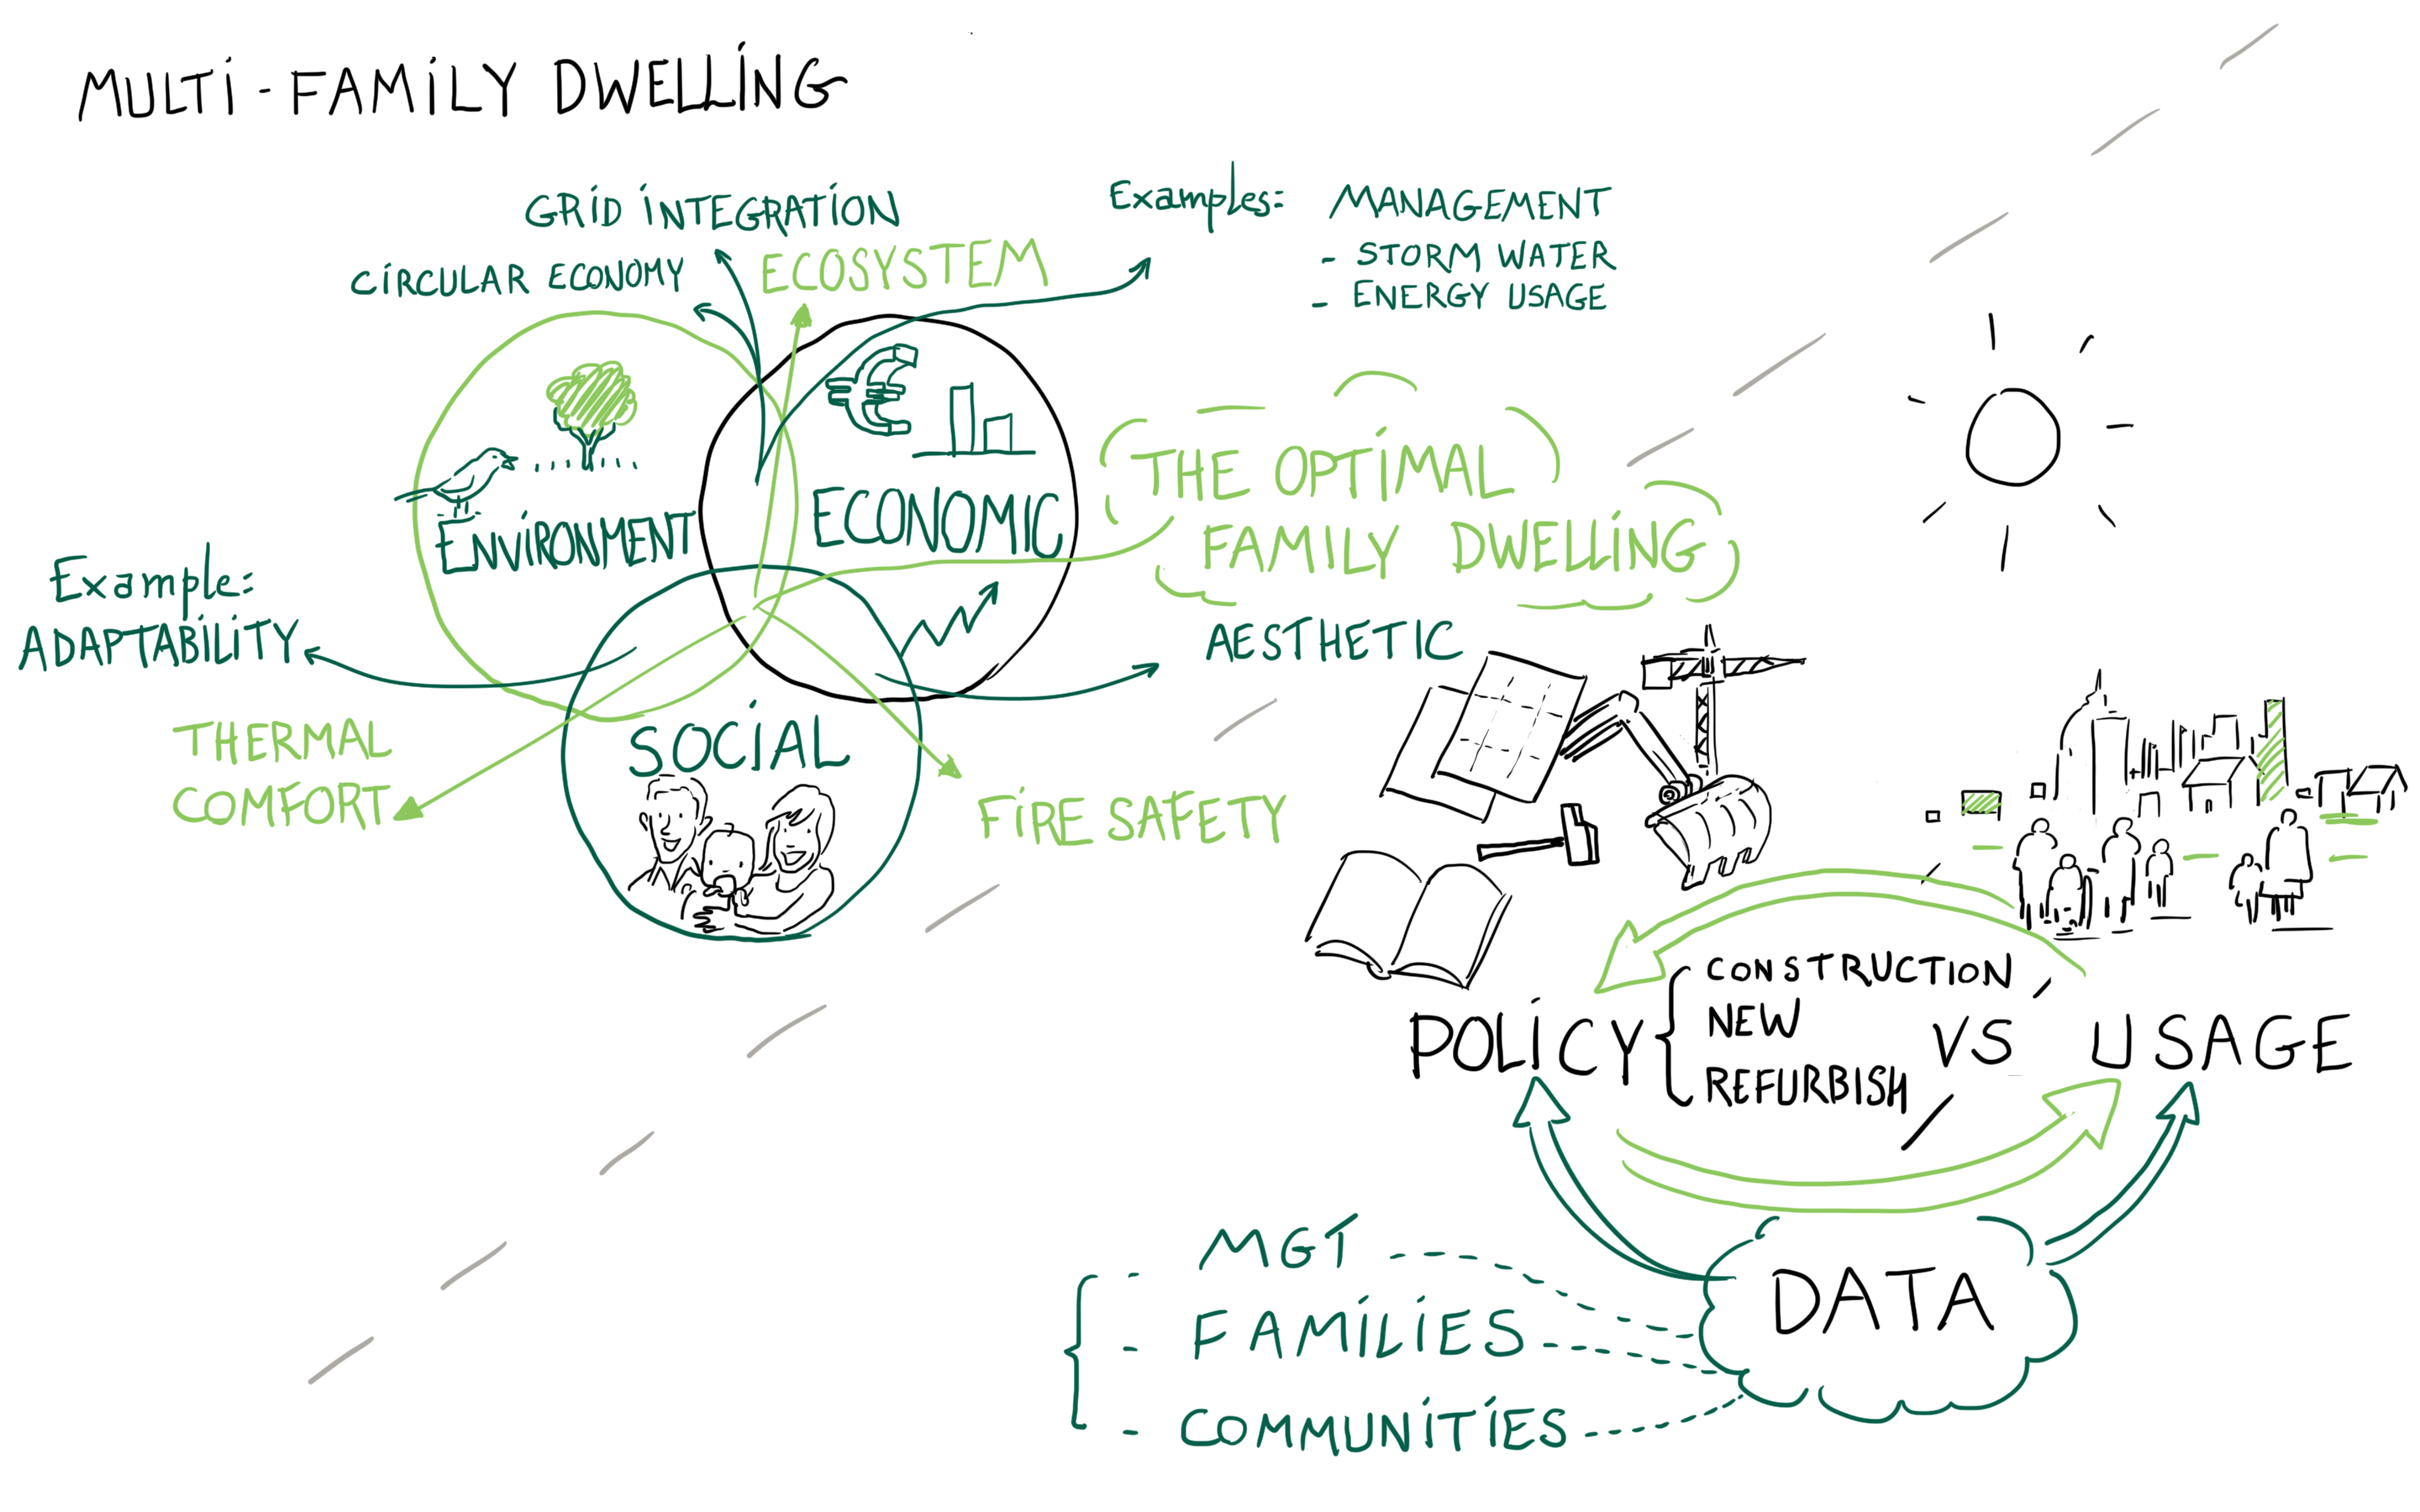 MULTI-FAMILY DWELLING
GRID INTEGRATION
CIRCULAR ECONOMY
ECOSYSTEM
Examples: MANAGEMENT
- STORM WATER
- ENERGY USAGE
ENVIRONMENT
ECONOMIC
THE OPTIMAL
FAMILY DWELLING
Example:
ADAPTABILITY
AESTHETIC
THERMAL
COMFORT
SOCIAL
FIRE SAFETY
POLICY
CONSTRUCTION
NEW
REFURBISH
VS
USAGE
- MGT
- FAMILIES
- COMMUNITIES
DATA